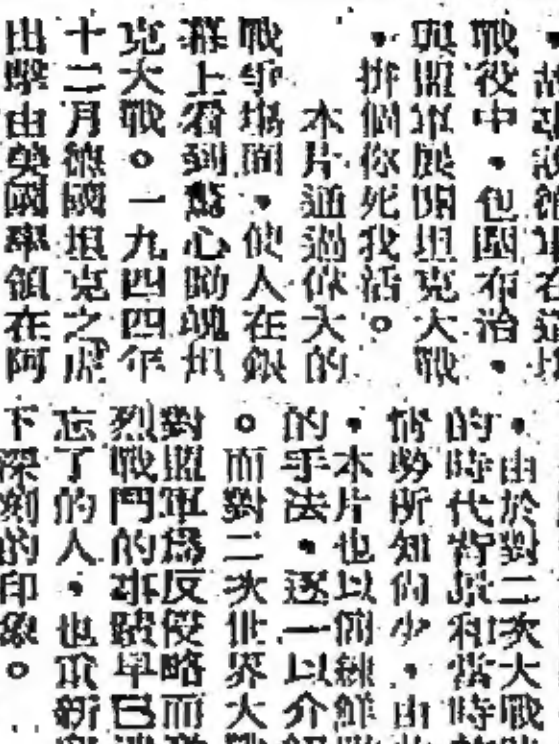 戰役中,包圍布治,
與盟軍展開坦克大戰
,拚個你死我活。
本片通過偉大的
戰爭場面,使人在銀
群上看到驚心動魄坦
克大戰。一九四四年
十二月德國坦克之虎
出擊由英國率領在阿
,由於對二次大戰
的時代背景和當時
情勢所知尚少,由
,本片也以簡練鮮
的手法,逐一以介
。而對二次世界大
對盟軍為反侵略而
烈戰鬥的事蹟早已
忘了的人,也重新
下深刻的印象。